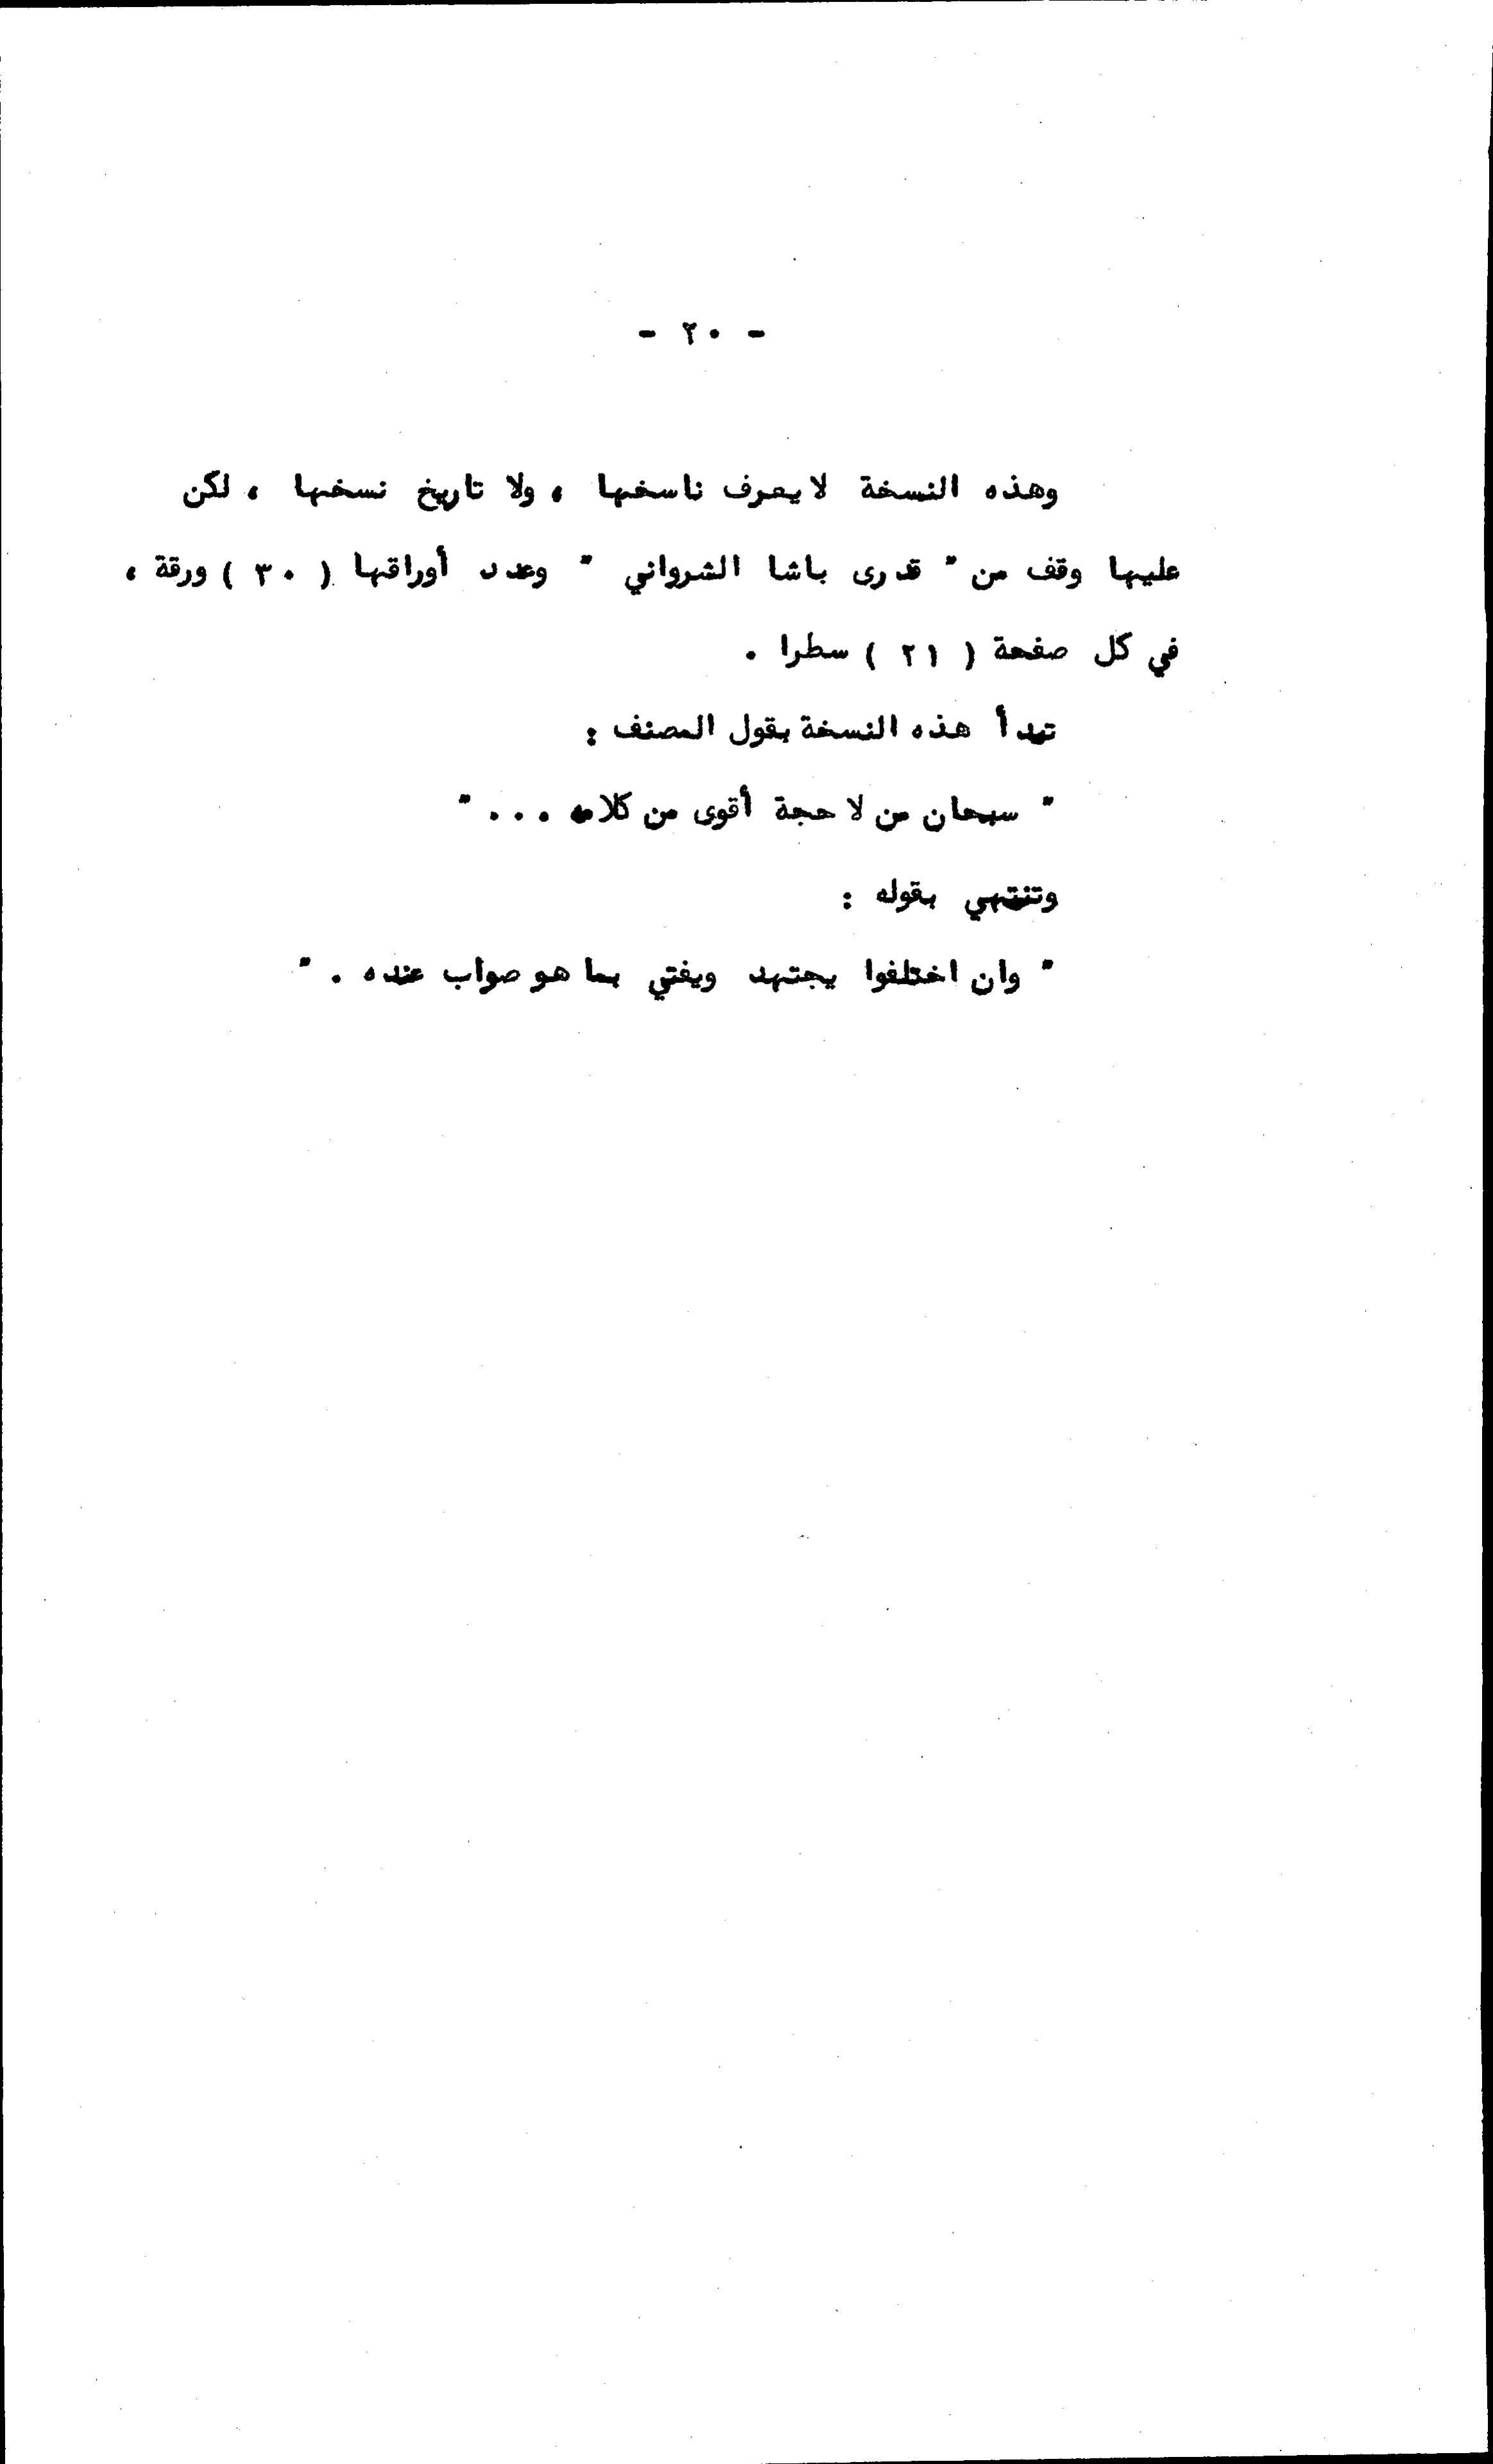 - ٢٠ -
وهذه النسخة لا يعرف ناسخها ، ولا تاريخ نسخها ، لكن
عليها وقف من " قدرى باشا الشرواني " وعدد أوراقها ( ٣٠ ) ورقة ،
في كل صفحة ( ٢١ ) سطرا .
تبدأ هذه النسخة بقول المصنف :
" سبحان من لا حجة أقوى من كلامه ... "
وتنتهي بقوله :
" وان اختلفوا يجتهد ويفتي بما هو صواب عنده . "